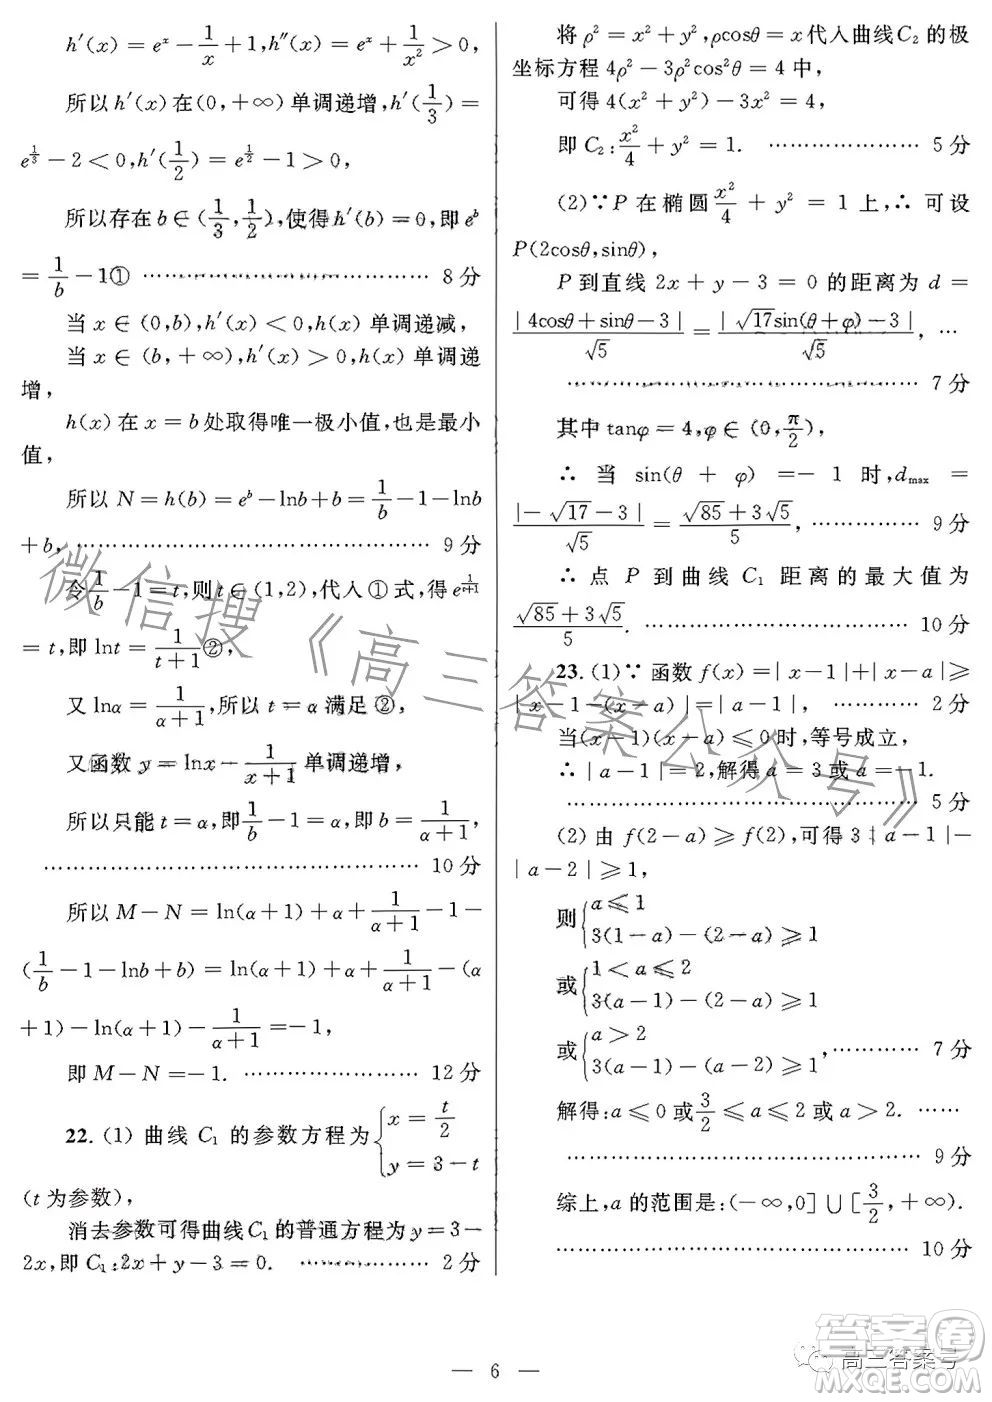 h′(x) = eˣ − 1/x + 1, h″(x) = eˣ + 1/x² > 0,
所以 h′(x) 在 (0, +∞) 单调递增, h′(1/3) =
e^(1/3) − 2 < 0, h′(1/2) = e^(1/2) − 1 > 0,
所以存在 b ∈ (1/3, 1/2), 使得 h′(b) = 0, 即 e^b
= 1/b − 1① ………………………… 8 分
当 x ∈ (0, b), h′(x) < 0, h(x) 单调递减,
当 x ∈ (b, +∞), h′(x) > 0, h(x) 单调递
增,
h(x) 在 x = b 处取得唯一极小值, 也是最小
值,
所以 N = h(b) = e^b − lnb + b = 1/b − 1 − lnb
+ b, ……………………………… 9 分
令 1/b − 1 = t, 则 t ∈ (1, 2), 代入 ① 式, 得 e^(1/(t+1))
= t, 即 lnt = 1/(t+1)②,
又 lnα = 1/(α+1), 所以 t = α 满足 ②,
又函数 y = lnx − 1/(x+1) 单调递增,
所以只能 t = α, 即 1/b − 1 = α, 即 b = 1/(α+1),
………………………………… 10 分
所以 M − N = ln(α+1) + α + 1/(α+1) − 1 −
(1/b − 1 − lnb + b) = ln(α+1) + α + 1/(α+1) − (α
+ 1) − ln(α+1) − 1/(α+1) = −1,
即 M − N = −1. ………………… 12 分
22. (1) 曲线 C₁ 的参数方程为 { x = t/2
y = 3 − t
(t 为参数),
消去参数可得曲线 C₁ 的普通方程为 y = 3 −
2x, 即 C₁: 2x + y − 3 = 0. …………… 2 分
将 ρ² = x² + y², ρcosθ = x 代入曲线 C₂ 的极
坐标方程 4ρ² − 3ρ²cos²θ = 4 中,
可得 4(x² + y²) − 3x² = 4,
即 C₂: x²/4 + y² = 1. ……………… 5 分
(2) ∵ P 在椭圆 x²/4 + y² = 1 上, ∴ 可设
P(2cosθ, sinθ),
P 到直线 2x + y − 3 = 0 的距离为 d =
|4cosθ + sinθ − 3|/√5 = |√17sin(θ+φ) − 3|/√5, …
……………………………… 7 分
其中 tanφ = 4, φ ∈ (0, π/2),
∴ 当 sin(θ + φ) = −1 时, d_max =
|−√17 − 3|/√5 = (√85 + 3√5)/5, ………… 9 分
∴ 点 P 到曲线 C₁ 距离的最大值为
(√85 + 3√5)/5. ………………………… 10 分
23. (1) ∵ 函数 f(x) = |x − 1| + |x − a| ≥
|x − 1 − (x − a)| = |a − 1|, ………… 2 分
当 (x − 1)(x − a) ≤ 0 时, 等号成立,
∴ |a − 1| = 2, 解得 a = 3 或 a = −1.
……………………………… 5 分
(2) 由 f(2 − a) ≥ f(2), 可得 3|a − 1| −
|a − 2| ≥ 1,
则 { a ≤ 1
3(1 − a) − (2 − a) ≥ 1
或 { 1 < a ≤ 2
3(a − 1) − (2 − a) ≥ 1
或 { a > 2
3(a − 1) − (a − 2) ≥ 1, ………… 7 分
解得: a ≤ 0 或 3/2 ≤ a ≤ 2 或 a > 2. ……
……………………………… 9 分
综上, a 的范围是: (−∞, 0] ∪ [3/2, +∞).
……………………………… 10 分
— 6 —
微信搜《高三答案公众号》
高三答案号
答案圈
MXQE.COM